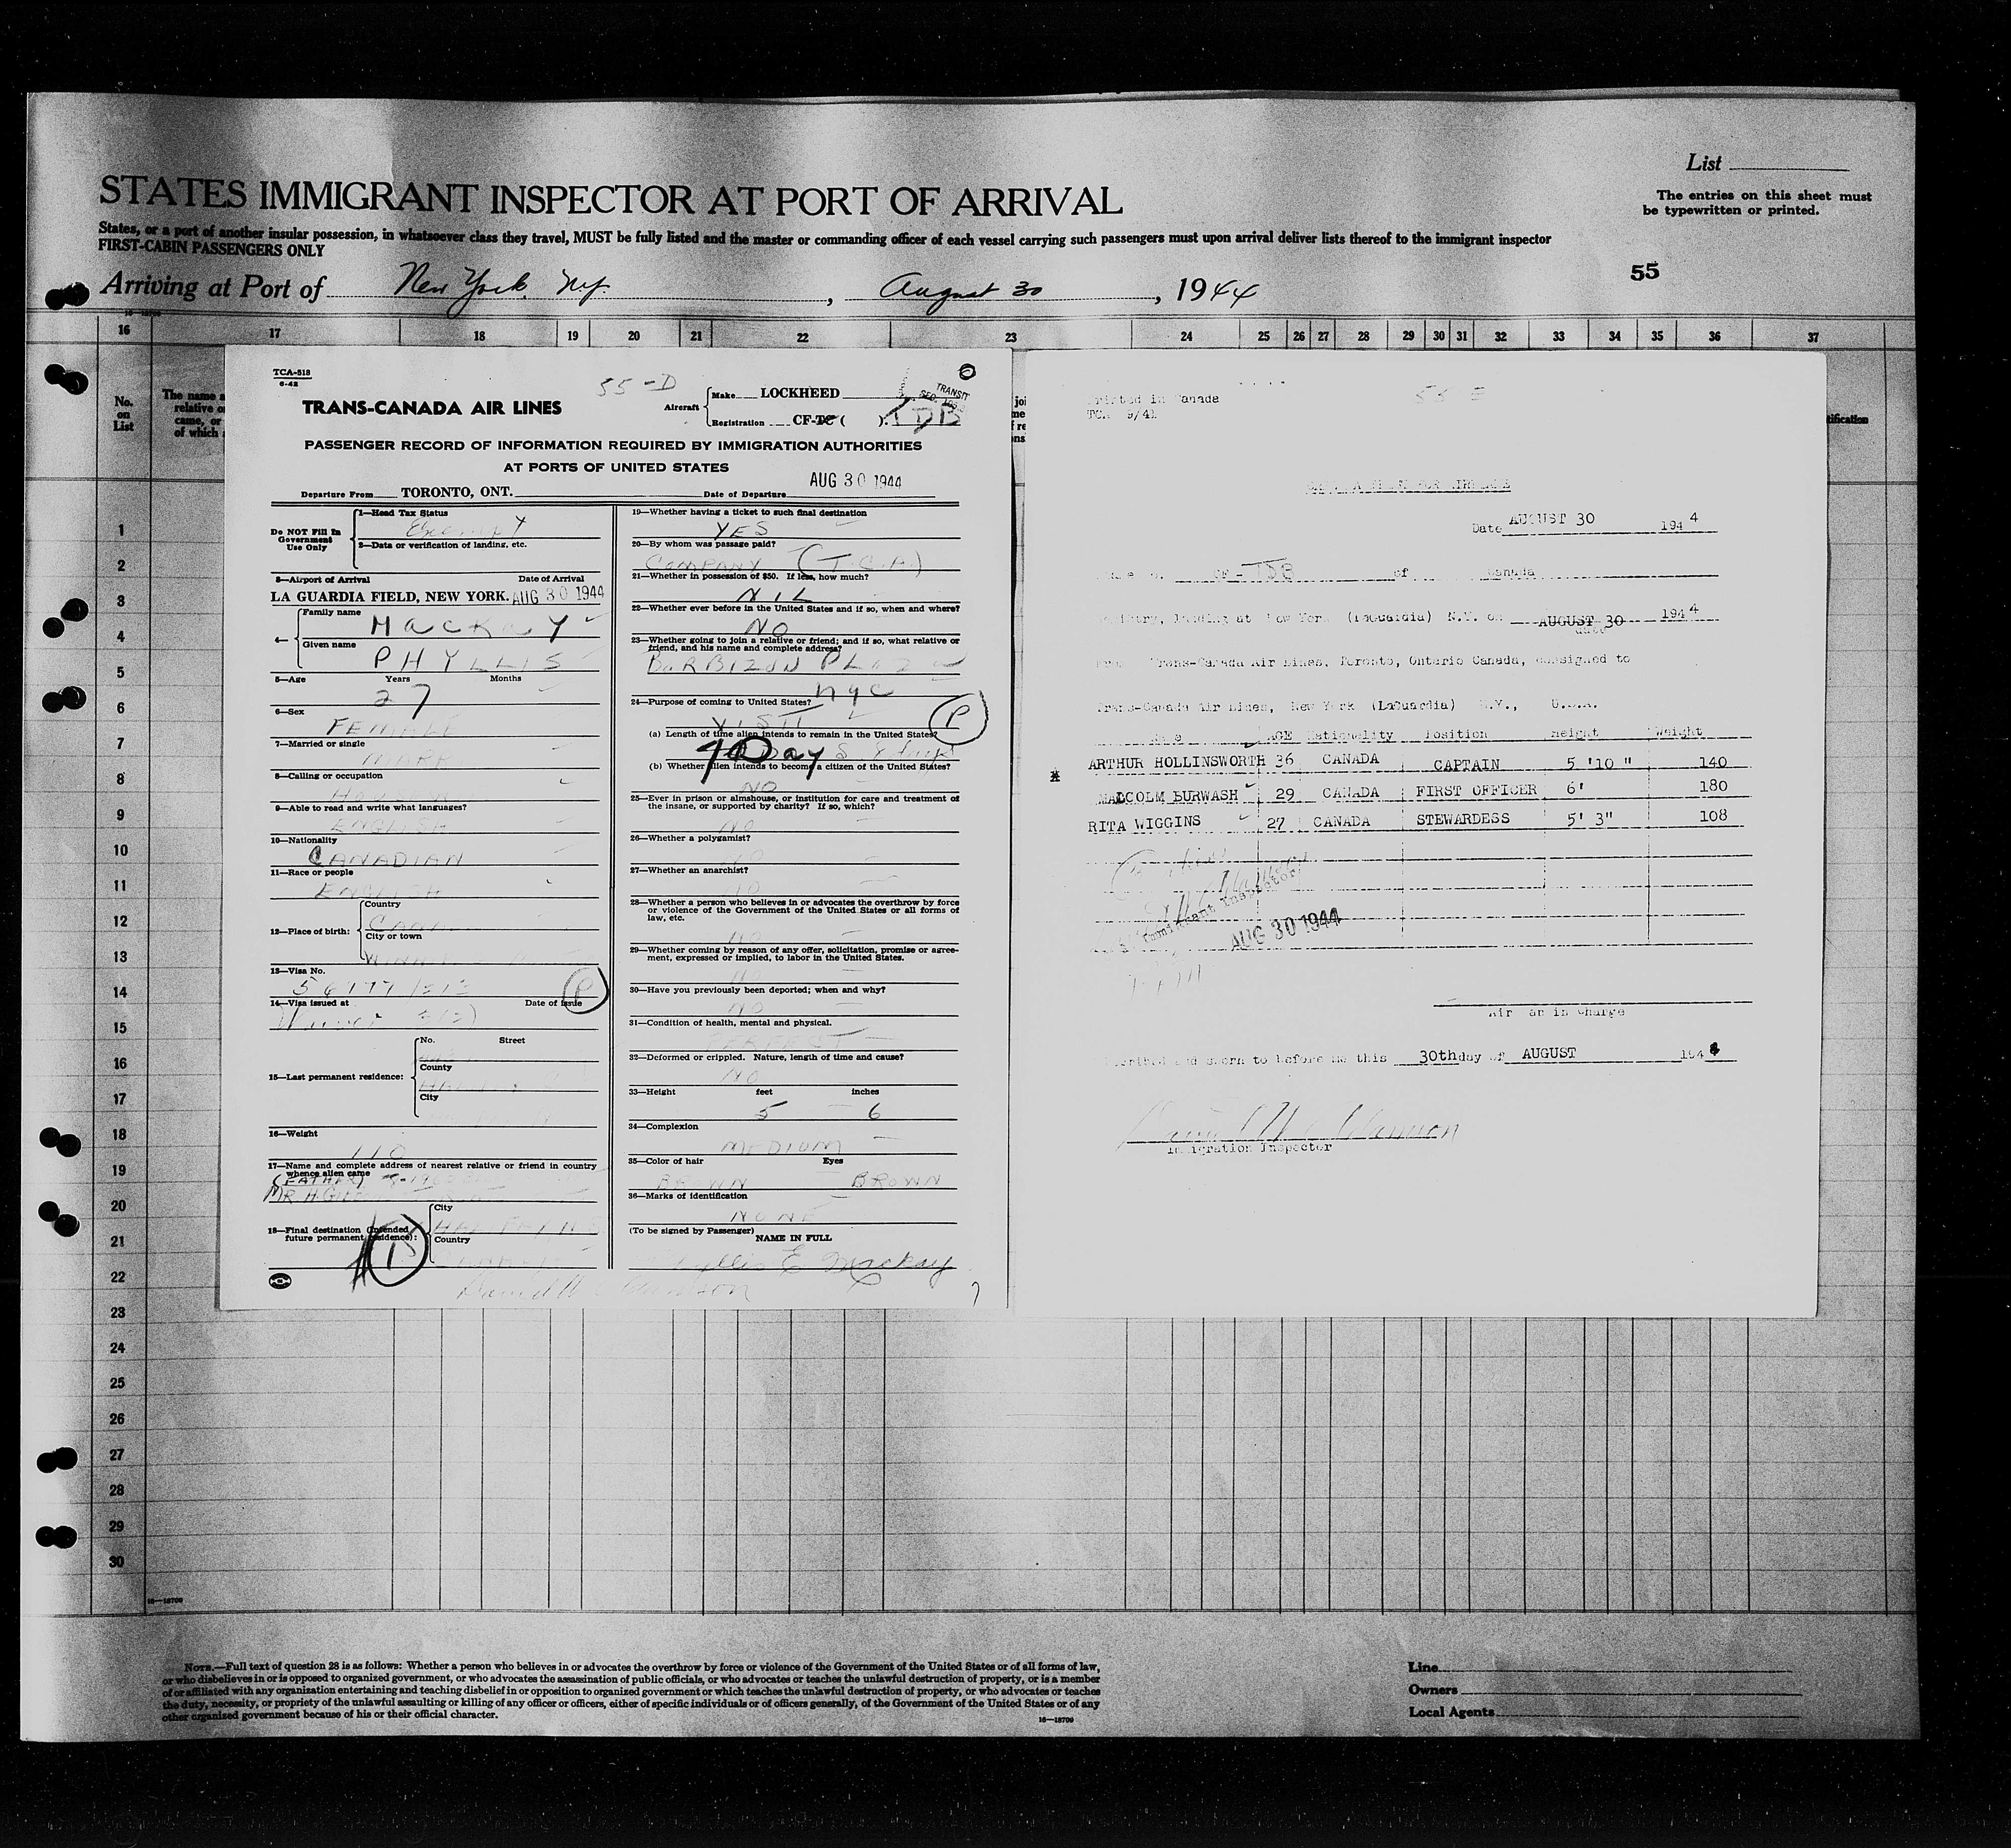 List
STATES IMMIGRANT INSPECTOR AT PORT OF ARRIVAL
The entries on this sheet must
be typewritten or printed.
States, or a port of another insular possession, in whatsoever class they travel, MUST be fully listed and the master or commanding officer of each vessel carrying such passengers must upon arrival deliver lists thereof to the immigrant inspector
FIRST-CABIN PASSENGERS ONLY
55
Arriving at Port of New York, N.Y. , August 30 , 1944
16 17 18 19 20 21 22 23 24 25 26 27 28 29 30 31 32 33 34 35 36 37
No.
on
List
The name a
relative o
came, or
of which
TCA-518
6-42
55-D
TRANS-CANADA AIR LINES
Aircraft
Make LOCKHEED
Registration CF-TC ( ). TDB
TRANSIT
PASSENGER RECORD OF INFORMATION REQUIRED BY IMMIGRATION AUTHORITIES
AT PORTS OF UNITED STATES
Departure From TORONTO, ONT. Date of Departure AUG 30 1944
Do NOT Fill In
Government
Use Only
1—Head Tax Status
Exempt
2—Data or verification of landing, etc.
3—Airport of Arrival Date of Arrival
LA GUARDIA FIELD, NEW YORK. AUG 30 1944
4—
Family name
MacKaY
Given name
PHYLLIS
5—Age Years Months
27
6—Sex
FEMALE
7—Married or single
MARR
8—Calling or occupation
9—Able to read and write what languages?
ENGLISH
10—Nationality
CANADIAN
11—Race or people
ENGLISH
12—Place of birth:
Country
City or town
13—Visa No.
P
14—Visa issued at Date of issue
15—Last permanent residence:
No. Street
County
City
16—Weight
110
17—Name and complete address of nearest relative or friend in country
whence alien came
(FATHER)
MR H
18—Final destination (Intended
future permanent residence):
City
Country
19—Whether having a ticket to such final destination
YES
20—By whom was passage paid?
COMPANY (T.C.A.)
21—Whether in possession of $50. If less, how much?
NIL
22—Whether ever before in the United States and if so, when and where?
NO
23—Whether going to join a relative or friend; and if so, what relative or
friend, and his name and complete address?
BARBIZON PLAZA
NYC
24—Purpose of coming to United States?
VISIT
P
(a) Length of time alien intends to remain in the United States?
Days 8 days
(b) Whether alien intends to become a citizen of the United States?
NO
25—Ever in prison or almshouse, or institution for care and treatment of
the insane, or supported by charity? If so, which?
NO
26—Whether a polygamist?
NO
27—Whether an anarchist?
NO
28—Whether a person who believes in or advocates the overthrow by force
or violence of the Government of the United States or all forms of
law, etc.
NO
29—Whether coming by reason of any offer, solicitation, promise or agree-
ment, expressed or implied, to labor in the United States.
NO
30—Have you previously been deported; when and why?
NO
31—Condition of health, mental and physical.
32—Deformed or crippled. Nature, length of time and cause?
NO
33—Height feet inches
5 6
34—Complexion
MEDIUM
35—Color of hair Eyes
BROWN BROWN
36—Marks of identification
NONE
(To be signed by Passenger)
NAME IN FULL
Phyllis E Mackay
Printed in Canada
TCA 9/41
55 E
Date AUGUST 30 1944
CF-TDB of Canada
landing at New York (LaGuardia) N.Y. on AUGUST 30 1944
date
Trans-Canada Air Lines, Toronto, Ontario Canada, consigned to
Trans-Canada Air Lines, New York (LaGuardia) N.Y., U.S.A.
Name AGE Nationality Position Height Weight
ARTHUR HOLLINSWORTH 36 CANADA CAPTAIN 5 '10 " 140
MALCOLM BURWASH 29 CANADA FIRST OFFICER 6' 180
RITA WIGGINS 27 CANADA STEWARDESS 5' 3" 108
Immigrant Inspector
AUG 30 1944
Airman in Charge
Subscribed and sworn to before me this 30th day of AUGUST 1944
Immigration Inspector
tification
1
2
3
4
5
6
7
8
9
10
11
12
13
14
15
16
17
18
19
20
21
22
23
24
25
26
27
28
29
30
16—18709
NOTE.—Full text of question 28 is as follows: Whether a person who believes in or advocates the overthrow by force or violence of the Government of the United States or of all forms of law,
or who disbelieves in or is opposed to organized government, or who advocates the assassination of public officials, or who advocates or teaches the unlawful destruction of property, or is a member
of or affiliated with any organization entertaining and teaching disbelief in or opposition to organized government or which teaches the unlawful destruction of property, or who advocates or teaches
the duty, necessity, or propriety of the unlawful assaulting or killing of any officer or officers, either of specific individuals or of officers generally, of the Government of the United States or of any
other organized government because of his or their official character.
16—18709
Line
Owners
Local Agents